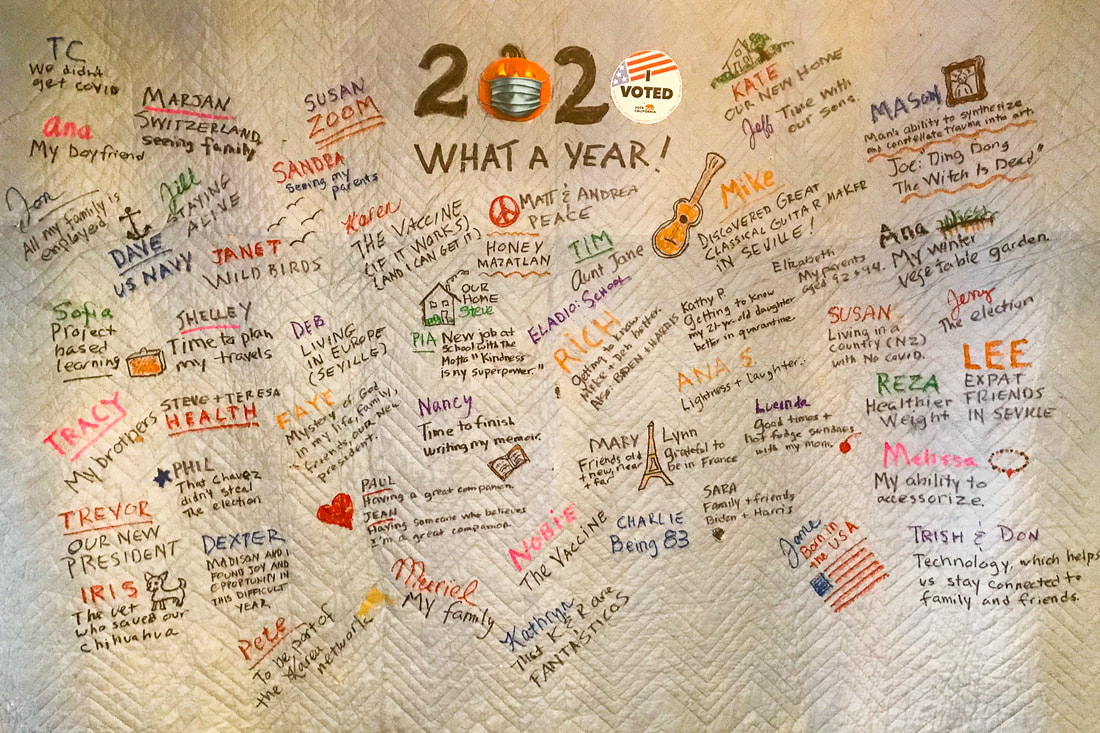 2020
I
VOTED
VOTE
CALIFORNIA
WHAT A YEAR!
TC
We didn't
get covid
MARJAN
SWITZERLAND
seeing family
SUSAN
ZOOM
ana
My boyfriend
SANDRA
Seeing my
parents
Jon
All my family is
employed
Jill
STAYING
ALIVE
DAVE
US NAVY
JANET
WILD BIRDS
Karen
THE VACCINE
(IF IT WORKS)
(AND I CAN GET IT)
MATT & ANDREA
PEACE
HONEY
MAZATLAN
TIM
Aunt Jane
Mike
DISCOVERED GREAT
CLASSICAL GUITAR MAKER
IN SEVILLE!
KATE
OUR NEW HOME
Jeff Time with
our sons.
MASON
Man's ability to synthesize
and constellate trauma into art.
Joe: Ding Dong
The Witch Is Dead"
Ana
My winter
vegetable garden.
Elizabeth
My parents
aged 92 & 94.
Sofia
Project
based
learning
SHELLEY
Time to plan
my travels
DEB
LIVING
IN EUROPE
(SEVILLE)
OUR
HOME
Steve
PIA New job at
School with the
Motto "Kindness
is my superpower."
ELADIO: SCHOOL
RICH
Getting to know
Mike + Deb better.
Also BIDEN + HARRIS
Kathy P.
Getting to know
my 21-yr-old daughter
better in quarantine
ANA S
Lightness + Laughter.
SUSAN
Living in a
country (NZ)
with No covid.
Jerry
The election
LEE
EXPAT
FRIENDS
IN SEVILLE
REZA
Healthier
Weight
TRACY
My brothers
STEVE + TERESA
HEALTH
FAYE
Mystery of God
in my life, family,
friends, our new
president.
Nancy
Time to finish
writing my memoir.
MARY
Friends old
+ new, near
+ far
Lynn
grateful to
be in France
Lucinda
Good times +
hot fudge sundaes
with my mom.
Melissa
My ability to
accessorize.
PHIL
That Chavez
didn't steal
the election.
PAUL
Having a great companion
JEAN
Having someone who believes
I'm a great companion.
SARA
Family + friends
Biden + Harris
TREVOR
OUR NEW
PRESIDENT
DEXTER
MADISON AND I
FOUND JOY AND
OPPORTUNITY IN
THIS DIFFICULT
YEAR
NOBIE
The VACCINE
CHARLIE
Being 83
Jane
Born in
the USA
TRISH & DON
Technology, which helps
us stay connected to
family and friends.
IRIS
The vet
who saved our
chihuahua
Pete
To be part of
the Karen
network
Muriel
My family
Kathryn
That K & R are
FANTASTICOS